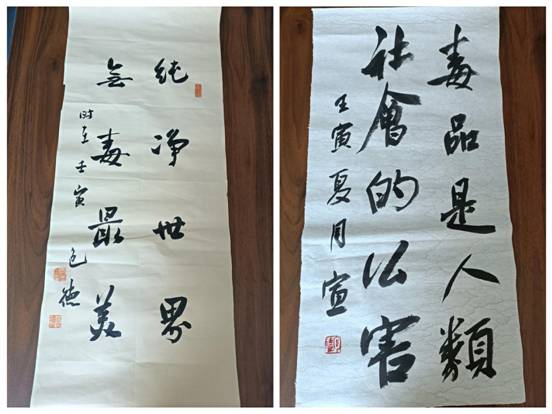 纯净世界
無毒最美
时至壬寅
毒品是人類
社會的公害
壬寅夏月
宣